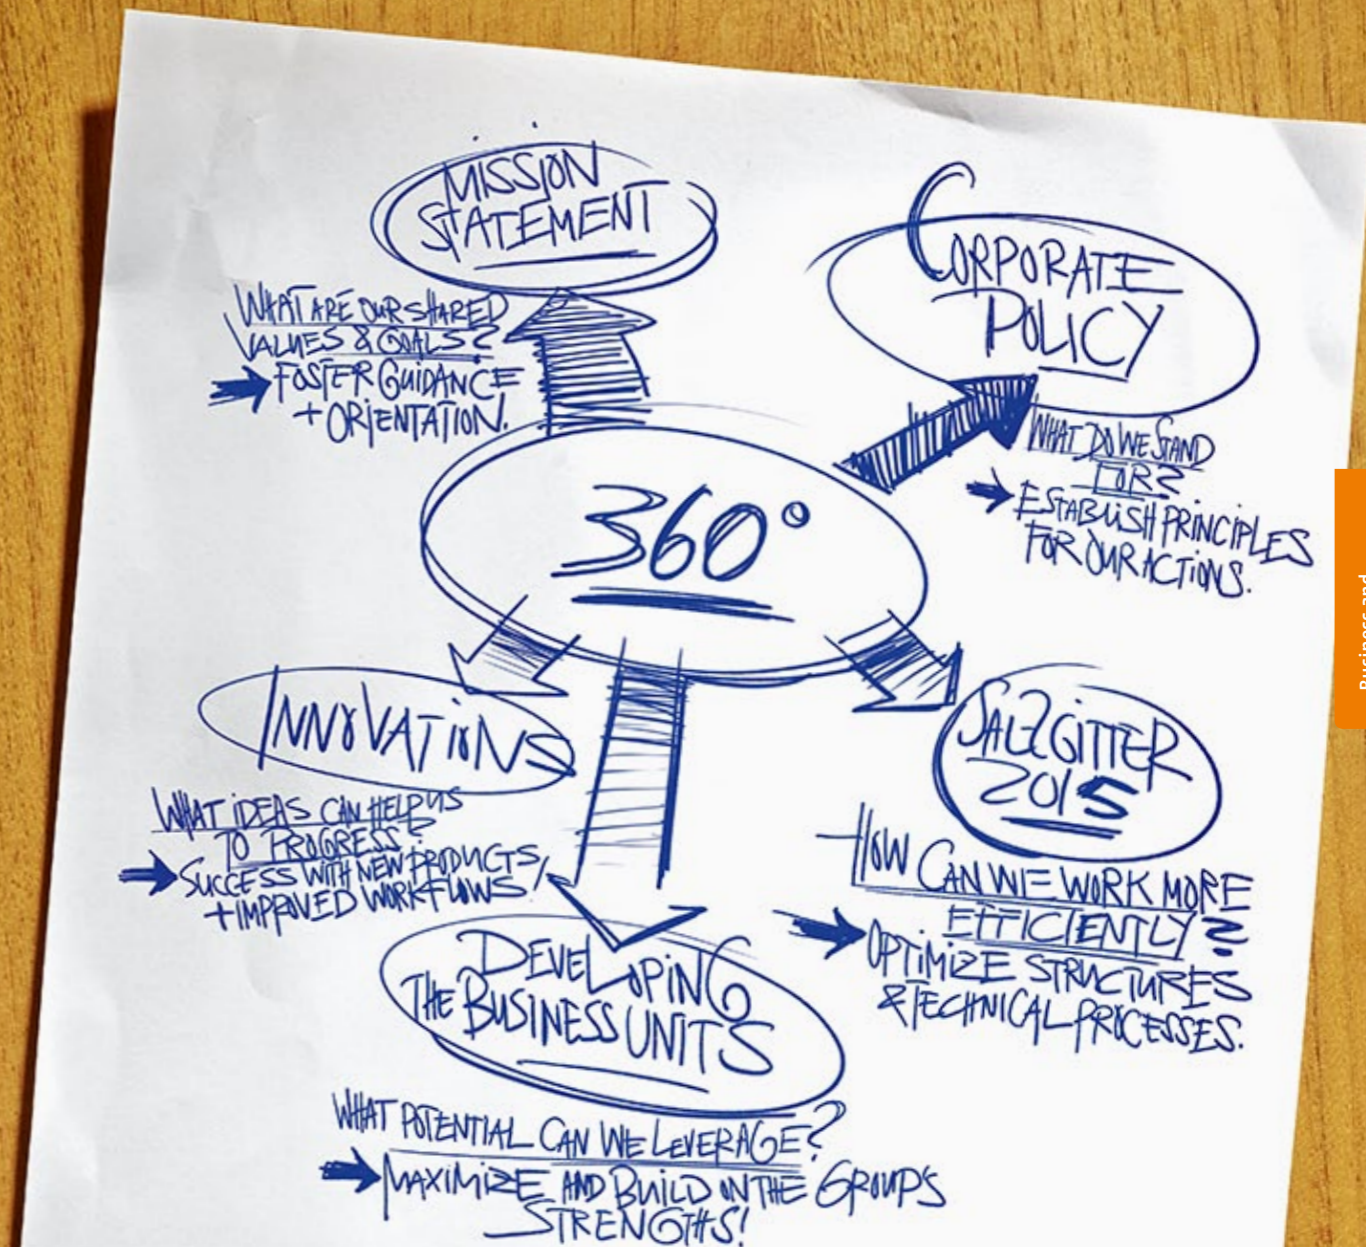 MISSION
STATEMENT
WHAT ARE OUR SHARED
VALUES & GOALS?
FOSTER GUIDANCE
+ ORIENTATION.
CORPORATE
POLICY
WHAT DO WE STAND
FOR?
ESTABLISH PRINCIPLES
FOR OUR ACTIONS.
360°
INNOVATIONS
WHAT IDEAS CAN HELP US
TO PROGRESS?
SUCCESS WITH NEW PRODUCTS
+ IMPROVED WORKFLOWS!
SALZGITTER
2015
HOW CAN WE WORK MORE
EFFICIENTLY?
OPTIMIZE STRUCTURES
& TECHNICAL PROCESSES.
DEVELOPING
THE BUSINESS UNITS
WHAT POTENTIAL CAN WE LEVERAGE?
MAXIMIZE AND BUILD ON THE GROUP'S
STRENGTHS!
Business and